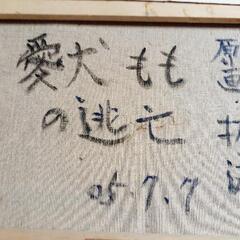 愛犬もも
の逃亡
05.7.7
原画・